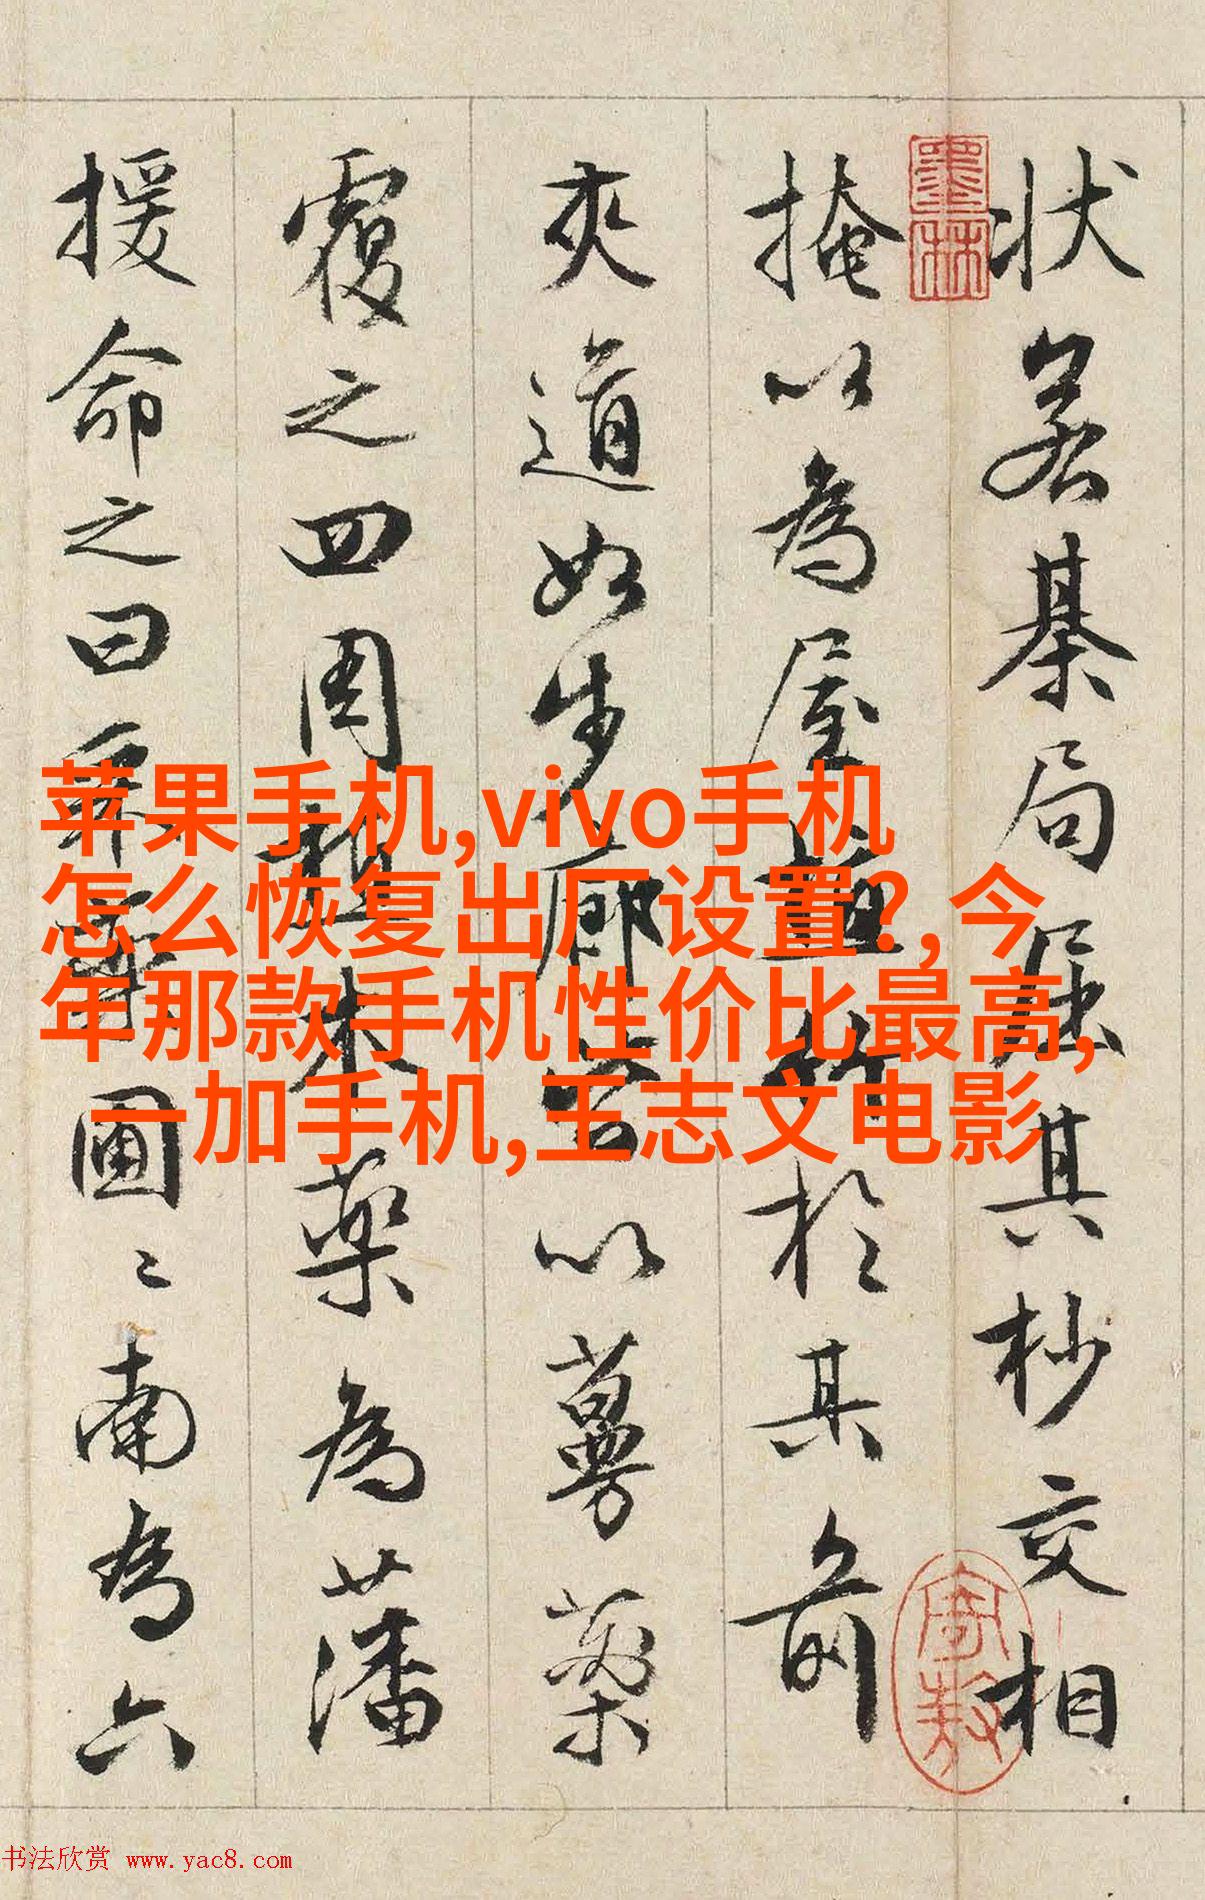 状若棊局屈其杪交相
掩以為屋植竹於其前
夾道如步廊皆以蔓藥
覆之四周植木藥為藩
援命之曰采藥圃〻南為六
墨林
苹果手机,vivo手机
怎么恢复出厂设置?,今
年那款手机性价比最高,
一加手机,王志文电影
书法欣赏 www.yac8.com